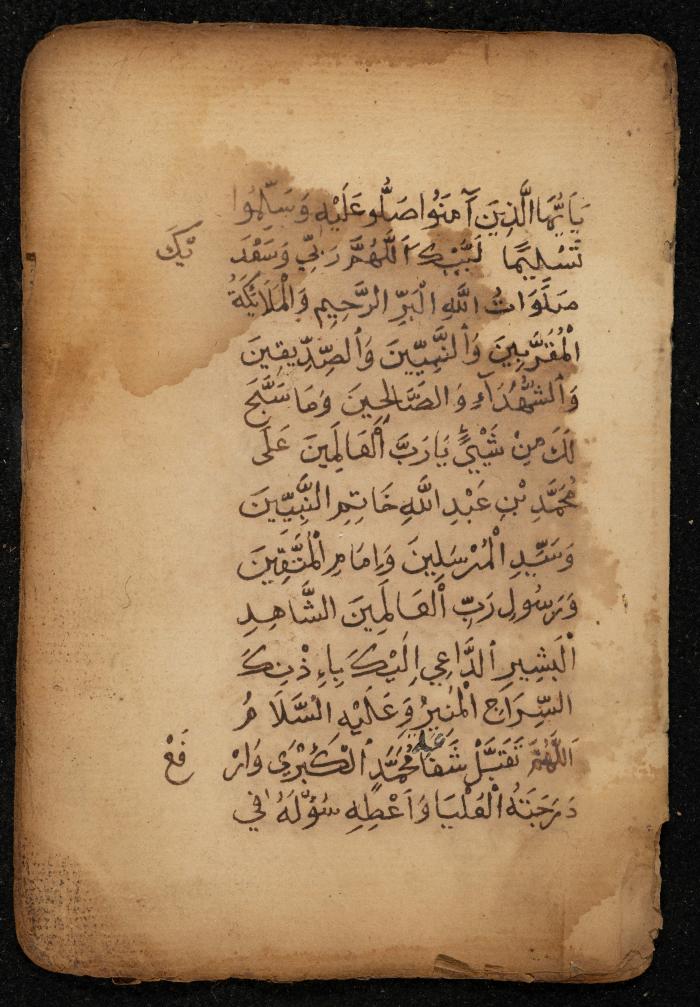 يَاَيُّهَا الَّذِينَ آمَنُوا صَلُّو عَلَيْهِ وَسَلِّمُوا
تَسْلِيمًا لَبَّيْكَ اَللَّهُمَّ رَبِّي وَسَعْدَ يْكَ
صَلَوَاتُ اللَّهِ الْبَرِّ الرَّحِيمِ وَالْمَلَائِكَةُ
الْمُقَرَّبِينَ وَالنَّبِيِّينَ وَالصِّدِّيقِينَ
وَالشُّهَدَآءِ وَالصَّالِحِينَ وَمَا سَبَّحَ
لَكَ مِنْ شَيْءٍ يَا رَبَّ الْعَالَمِينَ عَلَى
مُحَمَّدِ بْنِ عَبْدِ اللَّهِ خَاتِمِ النَّبِيِّينَ
وَسَيِّدِ الْمُرْسَلِينَ وَاِمَامِ الْمُتَّقِينَ
وَرَسُولِ رَبِّ الْعَالَمِينَ الشَّاهِدِ
الْبَشِيرِ الدَّاعِي اِلَيْكَ بِاِذْنِكَ
السِّرَاجِ الْمُنِيرُ وَعَلَيْهِ السَّلَامُ
اَللَّهُمَّ تَقَبَّلْ شَفَاعَة مُحَمَّدِ الْكُبْرَى وَارْ فَعْ
دَرَجَتَهُ الْعُلْيَا وَاَعْطِهِ سُؤْلَهُ فِي